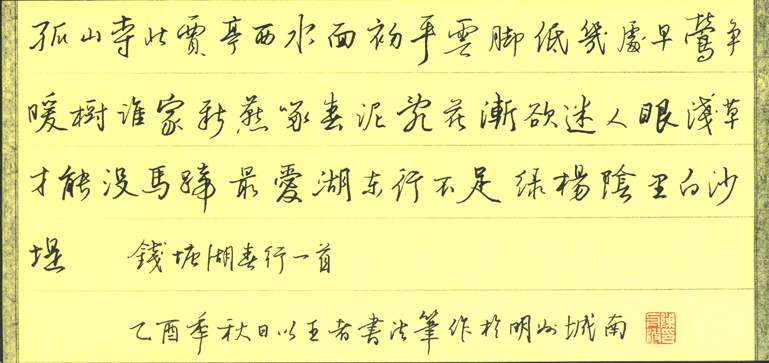 孤山寺北賈亭西水面初平雲脚低幾處早鶯争
暖樹誰家新燕啄春泥亂花漸欲迷人眼淺草
才能没馬蹄最愛湖东行不足绿楊陰里白沙
堤 錢塘湖春行一首
乙酉季秋日以王者書法筆作於明州城南